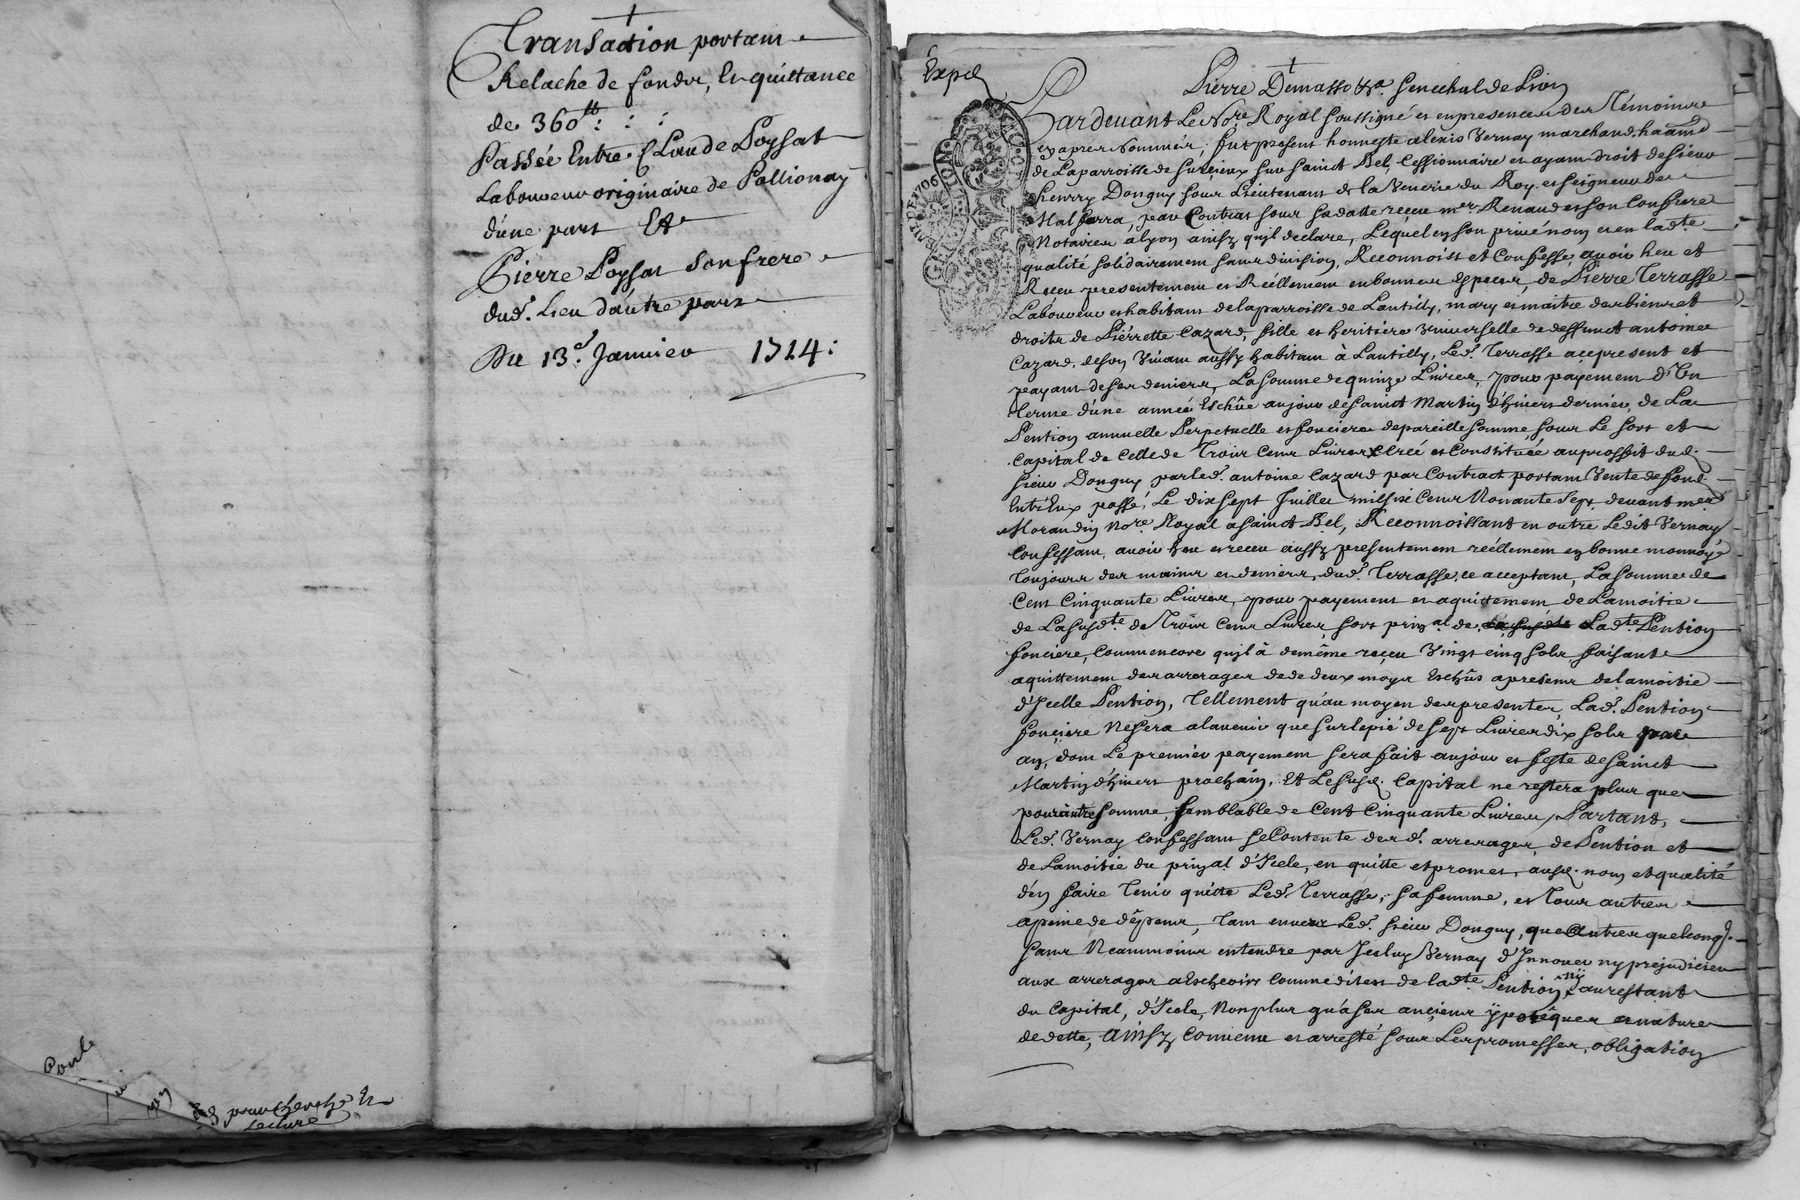 Transaction portant
Relache de fonds, Et quittance
de 360lt : : :
Passée Entre Claude Poysat
Laboureur originaire de Pollionay
d'une part Et
Pierre Poysat son frere
dud. Lieu d'autre part
Du 13e. Janvier 1724 :
pour cherche
Lecture
Exped
Pierre Demasso &a. Senechal de Lion
Pardevant Le Nore. Royal soussigné et en presence des Témoins
cy apres Nommés, fut present honneste alexis Vernay marchand
de La parroisse de Surcieux sur sainct Bel, Cessionnaire et ayant droit de sieur
henry Donguy sous Lieutenant de la Venerie du Roy et seigneur de
Malfarra, par Contrat sous sa datte reçeu mes. Renaud et son Confrere
Notaires à lyon ainsy quil declare, Lequel en son privé nom et en ladte
qualité solidairement sans division, Reconnoist et Confesse avoir heu et
Receu presentement et Réellement en bonnes especes, de Pierre Terrasse
Laboureur et habitant de la parroisse de Lantilly, mary et maitre des biens et
droits de Piérrette Cazard, fille et heritiere Universelle de deffunct antoine
Cazard, de son Vivant aussy habitant à Lantilly, Led. Terrasse acepresent et
payant de ses deniers, La somme de quinze Livres, pour payement d'Un
terme d'une année Eschûe au jour de sainct Martin d'hivers dernier, de La
Pention annuelle Perpetuelle et fonciere de pareille somme, sous Le sort et
Capital de Celle de Trois Cens Livres Creé et Constituée au proffit dud.
sieur Donguy par led. antoine Cazard par Contract portant Vente de fond
Entr'Eux passé, Le dix sept Juillet mil six Cens Nonante Sept devant me
Morandin Nore Royal a sainct Bel, Reconnoissant en outre Ledit Vernay
Confessant, avoir heu et receu aussy presentement réellement en bonne monnoye
toujours des mains et deniers, dud. Terrasse, ce acceptant, La somme de
Cent Cinquante Livres, pour payement et aquittement de La moitie
de La susdte. de Trois Cens Livres, sort prinal. de Ladte. Pention
fonciere, Comm encore quil à de même reçeu Vingt cinq sols, faisant
aquittement des arrerages de deux moys Eschûs apresent de la moitie
d'Icelle Pention, Tellement qu'au moyen des presentes, Lad. Pention
fonciere Ne sera a lavenir que sur le pié de Sept Livres dix sols par
an, dont Le premier payement sera fait au jour et feste de sainct
Martin d'hivers prochain, Et Le susd. Capital ne restera plus que
pour autre somme, semblable de Cent Cinquante Livres, Partant,
Led. Vernay Confessant se Contente des d. arrerages, de Pention et
de La moitie du prinal. d'Icele, en quitte et promet, ausd. nom et qualité
d'en faire tenir quitte Led. Terrasse, sa femme, et Tous autres
a peine de dêpens, tant envers Led. sieur Donguy, que autres quelconqs.
sans Neanmoins entendre par Jceluy Vernay d'Innover ny prejudicier
aux arrerages a Escheoirs Comme dit est de ladte. Pention, ny au restant
du Capital, d'Icele, Non plus qu'a ses anciens ypotêques et nature
de dette, Ainsy Convenu et arresté sous Les promesses, obligation